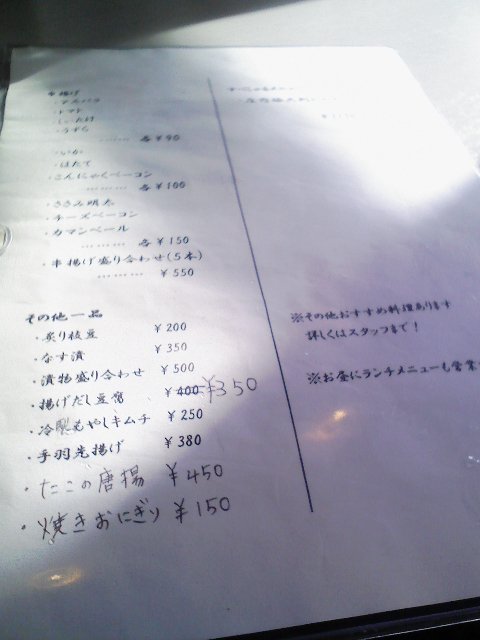 串揚げ
・アスパラ
・トマト
・しいたけ
・うずら
……… 各￥90
・いか
・ほたて
・こんにゃくベーコン
……… 各￥100
・ささみ明太
・チーズベーコン
・カマンベール
……… 各￥150
・串揚げ盛り合わせ(5本)
……… ￥550
その他一品
・炙り枝豆 ￥200
・なす漬 ￥350
・漬物盛り合わせ ￥500
・揚げだし豆腐 ￥400 ￥350
・冷製もやしキムチ ￥250
・手羽先揚げ ￥380
・たこの唐揚 ￥450
・焼きおにぎり ￥150
※その他おすすめ料理あります
詳しくはスタッフまで！
※お昼にランチメニューも営業